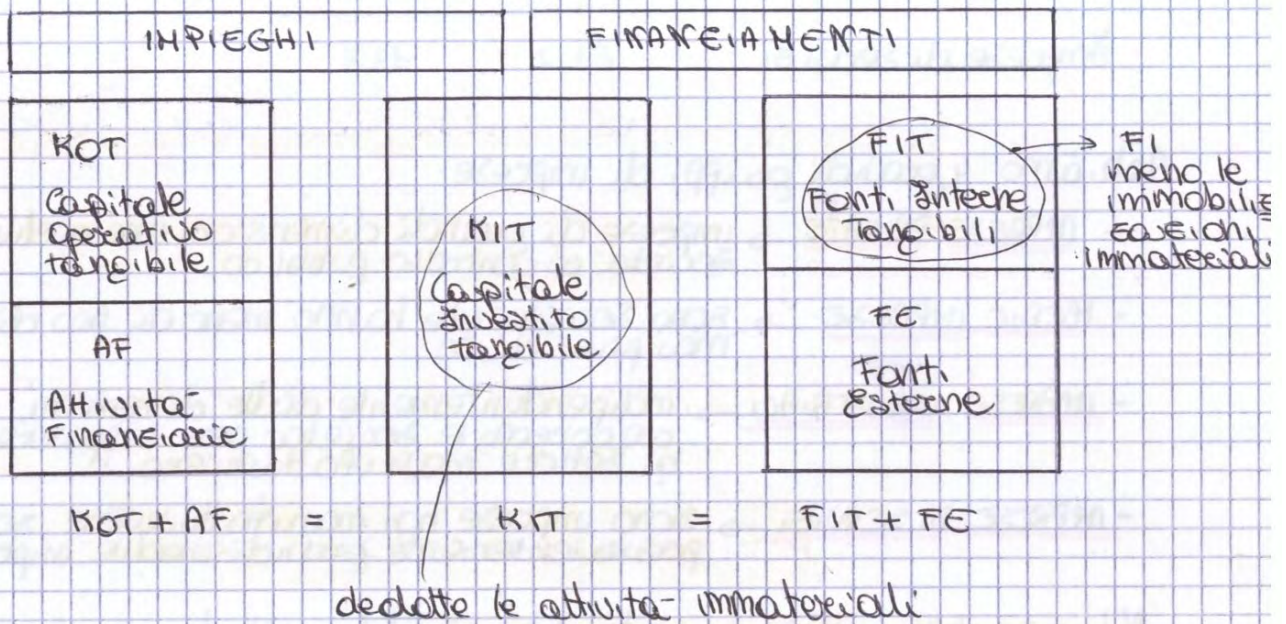 IMPIEGHI
FINANZIAMENTI
KOT
Capitale
Operativo
tangibile
AF
Attività
Finanziarie
KIT
Capitale
Investito
tangibile
FIT
Fonti Interne
Tangibili
FE
Fonti
Esterne
→ FI
meno le
immobiliz
zazioni
immateriali
KOT + AF = KIT = FIT + FE
dedotte le attività immateriali